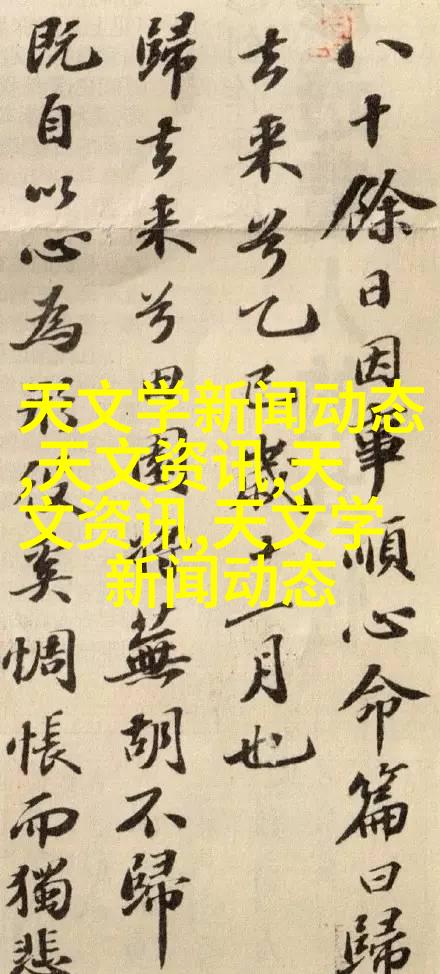 八十餘日因事順心命篇曰歸
去来兮乙巳歲十一月也
歸去来兮田園將蕪胡不歸
既自以心為形役奚惆悵而獨悲
天文学新闻动态
,天文资讯,天
文资讯,天文学
新闻动态